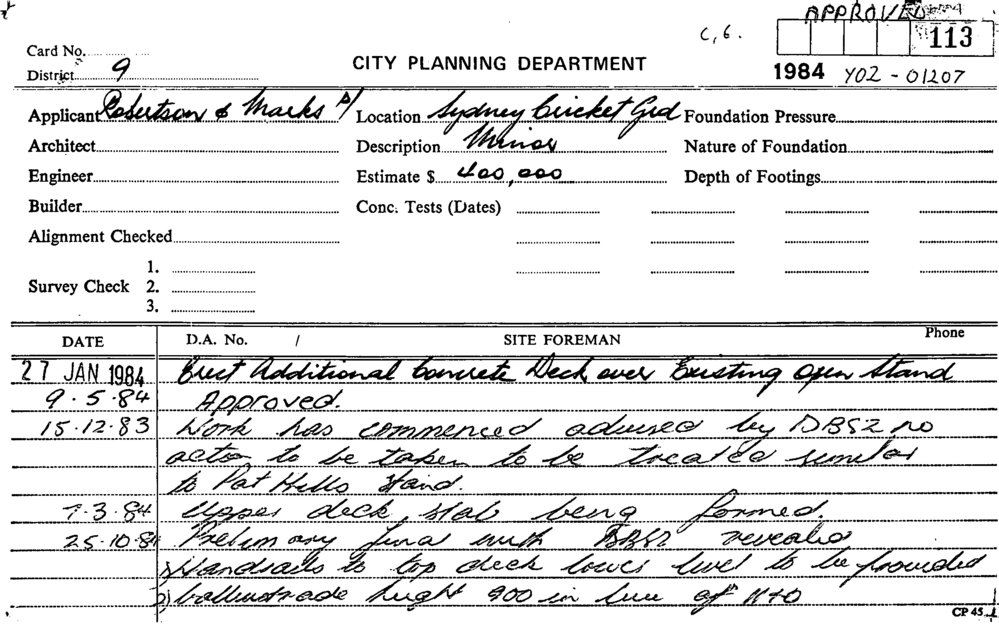 APPROVED
C,6. 113
Card No.
District 9 CITY PLANNING DEPARTMENT 1984 Y02 - 01207
Applicant Robertson & Marks P/ Location Sydney Cricket Grd Foundation Pressure
Architect Description Minor Nature of Foundation
Engineer Estimate $ 400,000 Depth of Footings
Builder Conc. Tests (Dates)
Alignment Checked
1.
Survey Check 2.
3.
DATE D.A. No. / SITE FOREMAN Phone
27 JAN 1984 Erect Additional Concrete Deck over Existing open Stand
9.5.84 Approved.
15.12.83 Work has commenced advised by DBS2 no
action to be taken to be treated similar
to Pat Hills Stand.
7.3.84 Upper deck slab being formed.
25.10.84 Prelimary final with DBS2 revealed
1) Handrails to top deck lower level to be provided
2) ballustrade height 900 in lieu of
CP 45